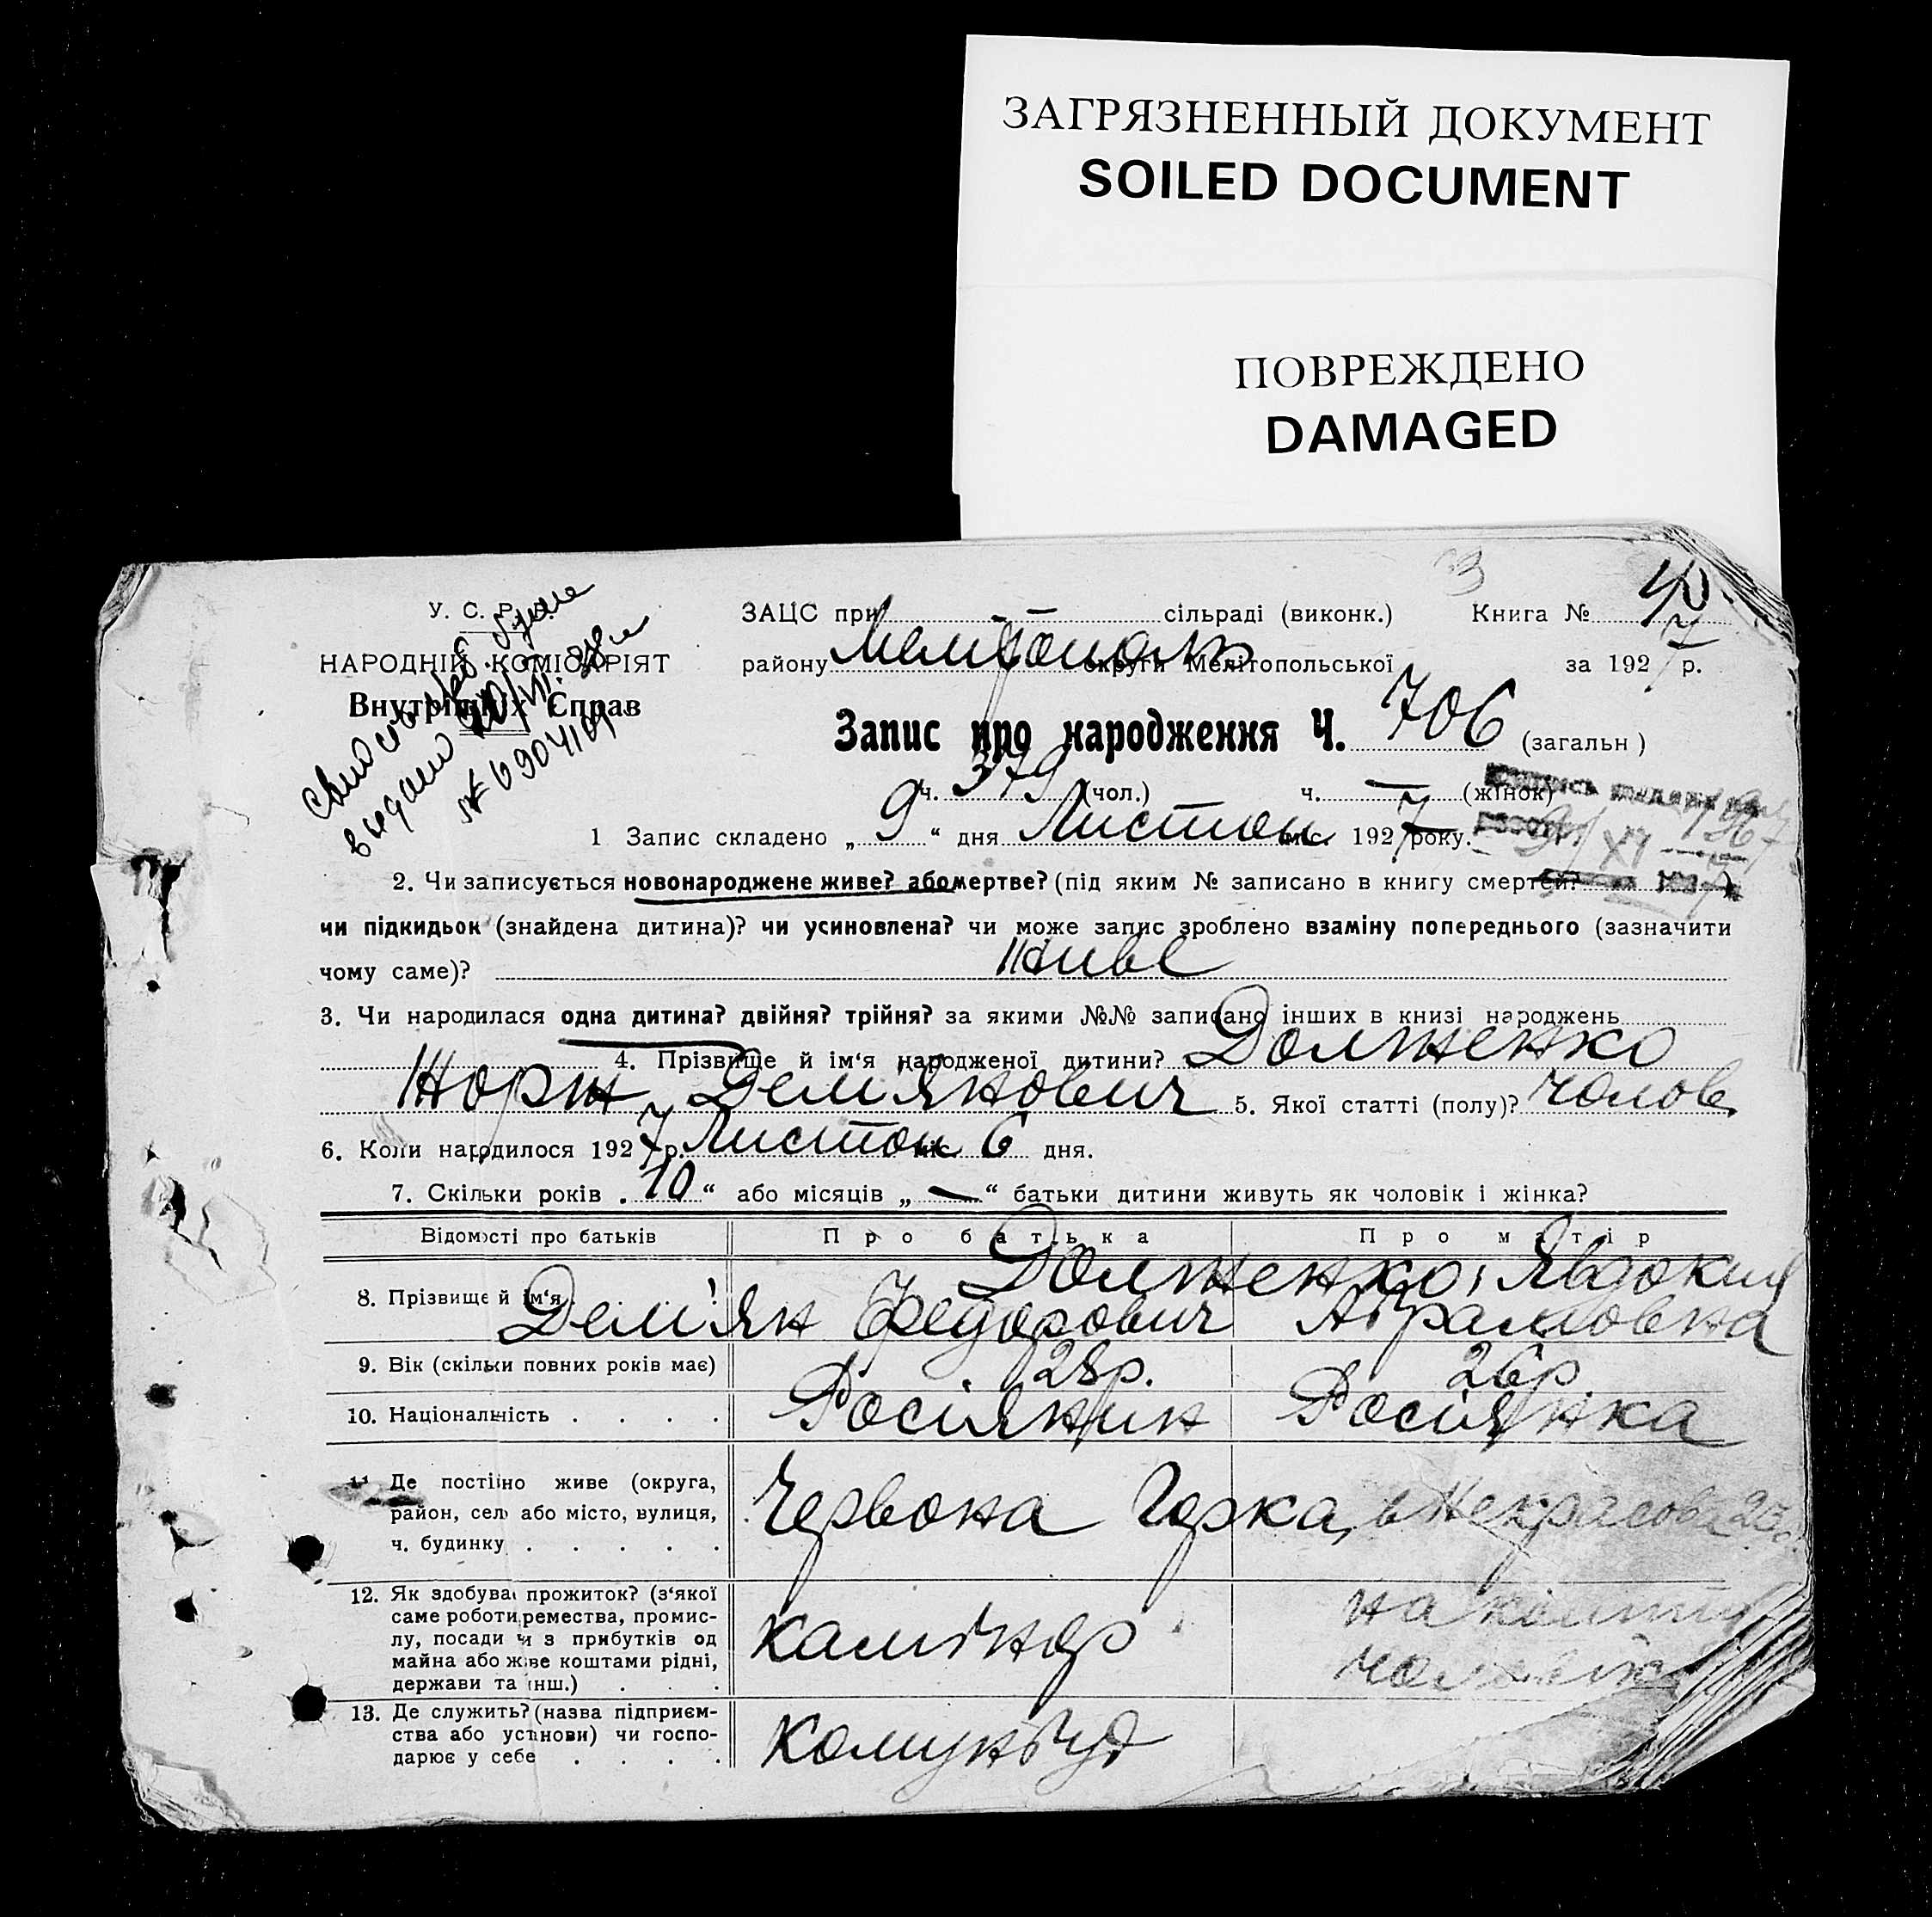 ЗАГРЯЗНЕННЫЙ ДОКУМЕНТ
SOILED DOCUMENT
ПОВРЕЖДЕНО
DAMAGED
У. С. Р. Р.
НАРОДНІЙ КОМІСАРІЯТ
Внутрішніх Справ
ЗАЦС при — сільраді (виконк.) Книга №
району Мелітополь округи Мелітопольської за 1927 р.
Запис про народження Ч. 706 (загальн)
ч. 379 (чол.) ч. — (жінок)
1 Запис складено „ 9 “ дня Листоп міс. 1927 року.
2. Чи записується новонароджене живе? або мертве? (під яким № записано в книгу смертей?
чи підкидьок (знайдена дитина)? чи усиновлена? чи може запис зроблено взаміну попереднього (зазначити
чому саме)? Живе
3. Чи народилася одна дитина? двійня? трійня? за якими №№ записано інших в книзі народжень
4. Прізвище й ім‘я народженої дитини? Долженко
Жорж Дем'янович 5. Якої статті (полу)? Чолов.
6. Коли народилося 1927 р. Листоп міс. 6 дня.
7. Скільки років „ 10 “ або місяців „ — “ батьки дитини живуть як чоловік і жінка?
Відомості про батьків Про батька Про матір
8. Прізвище й ім‘я Долженко, Явдокия
Дем'ян Федорович Абрамовна
9. Вік (скільки повних років має) 28р. 26р
10. Національність . . . . Росіянин Росіянка
11. Де постійно живе (округа,
район, село або місто, вулиця,
ч. будинку . . . . . Червона Горка, Некрасова 23
12. Як здобуває прожиток? (з‘якої
саме роботи, ремества, промис-
лу, посади чи з прибутків од
майна або живе коштами рідні,
держави та інш.) . . . каміняр на
13. Де служить? (назва підприєм-
ства або установи) чи госпо-
дарює у себе . . . .